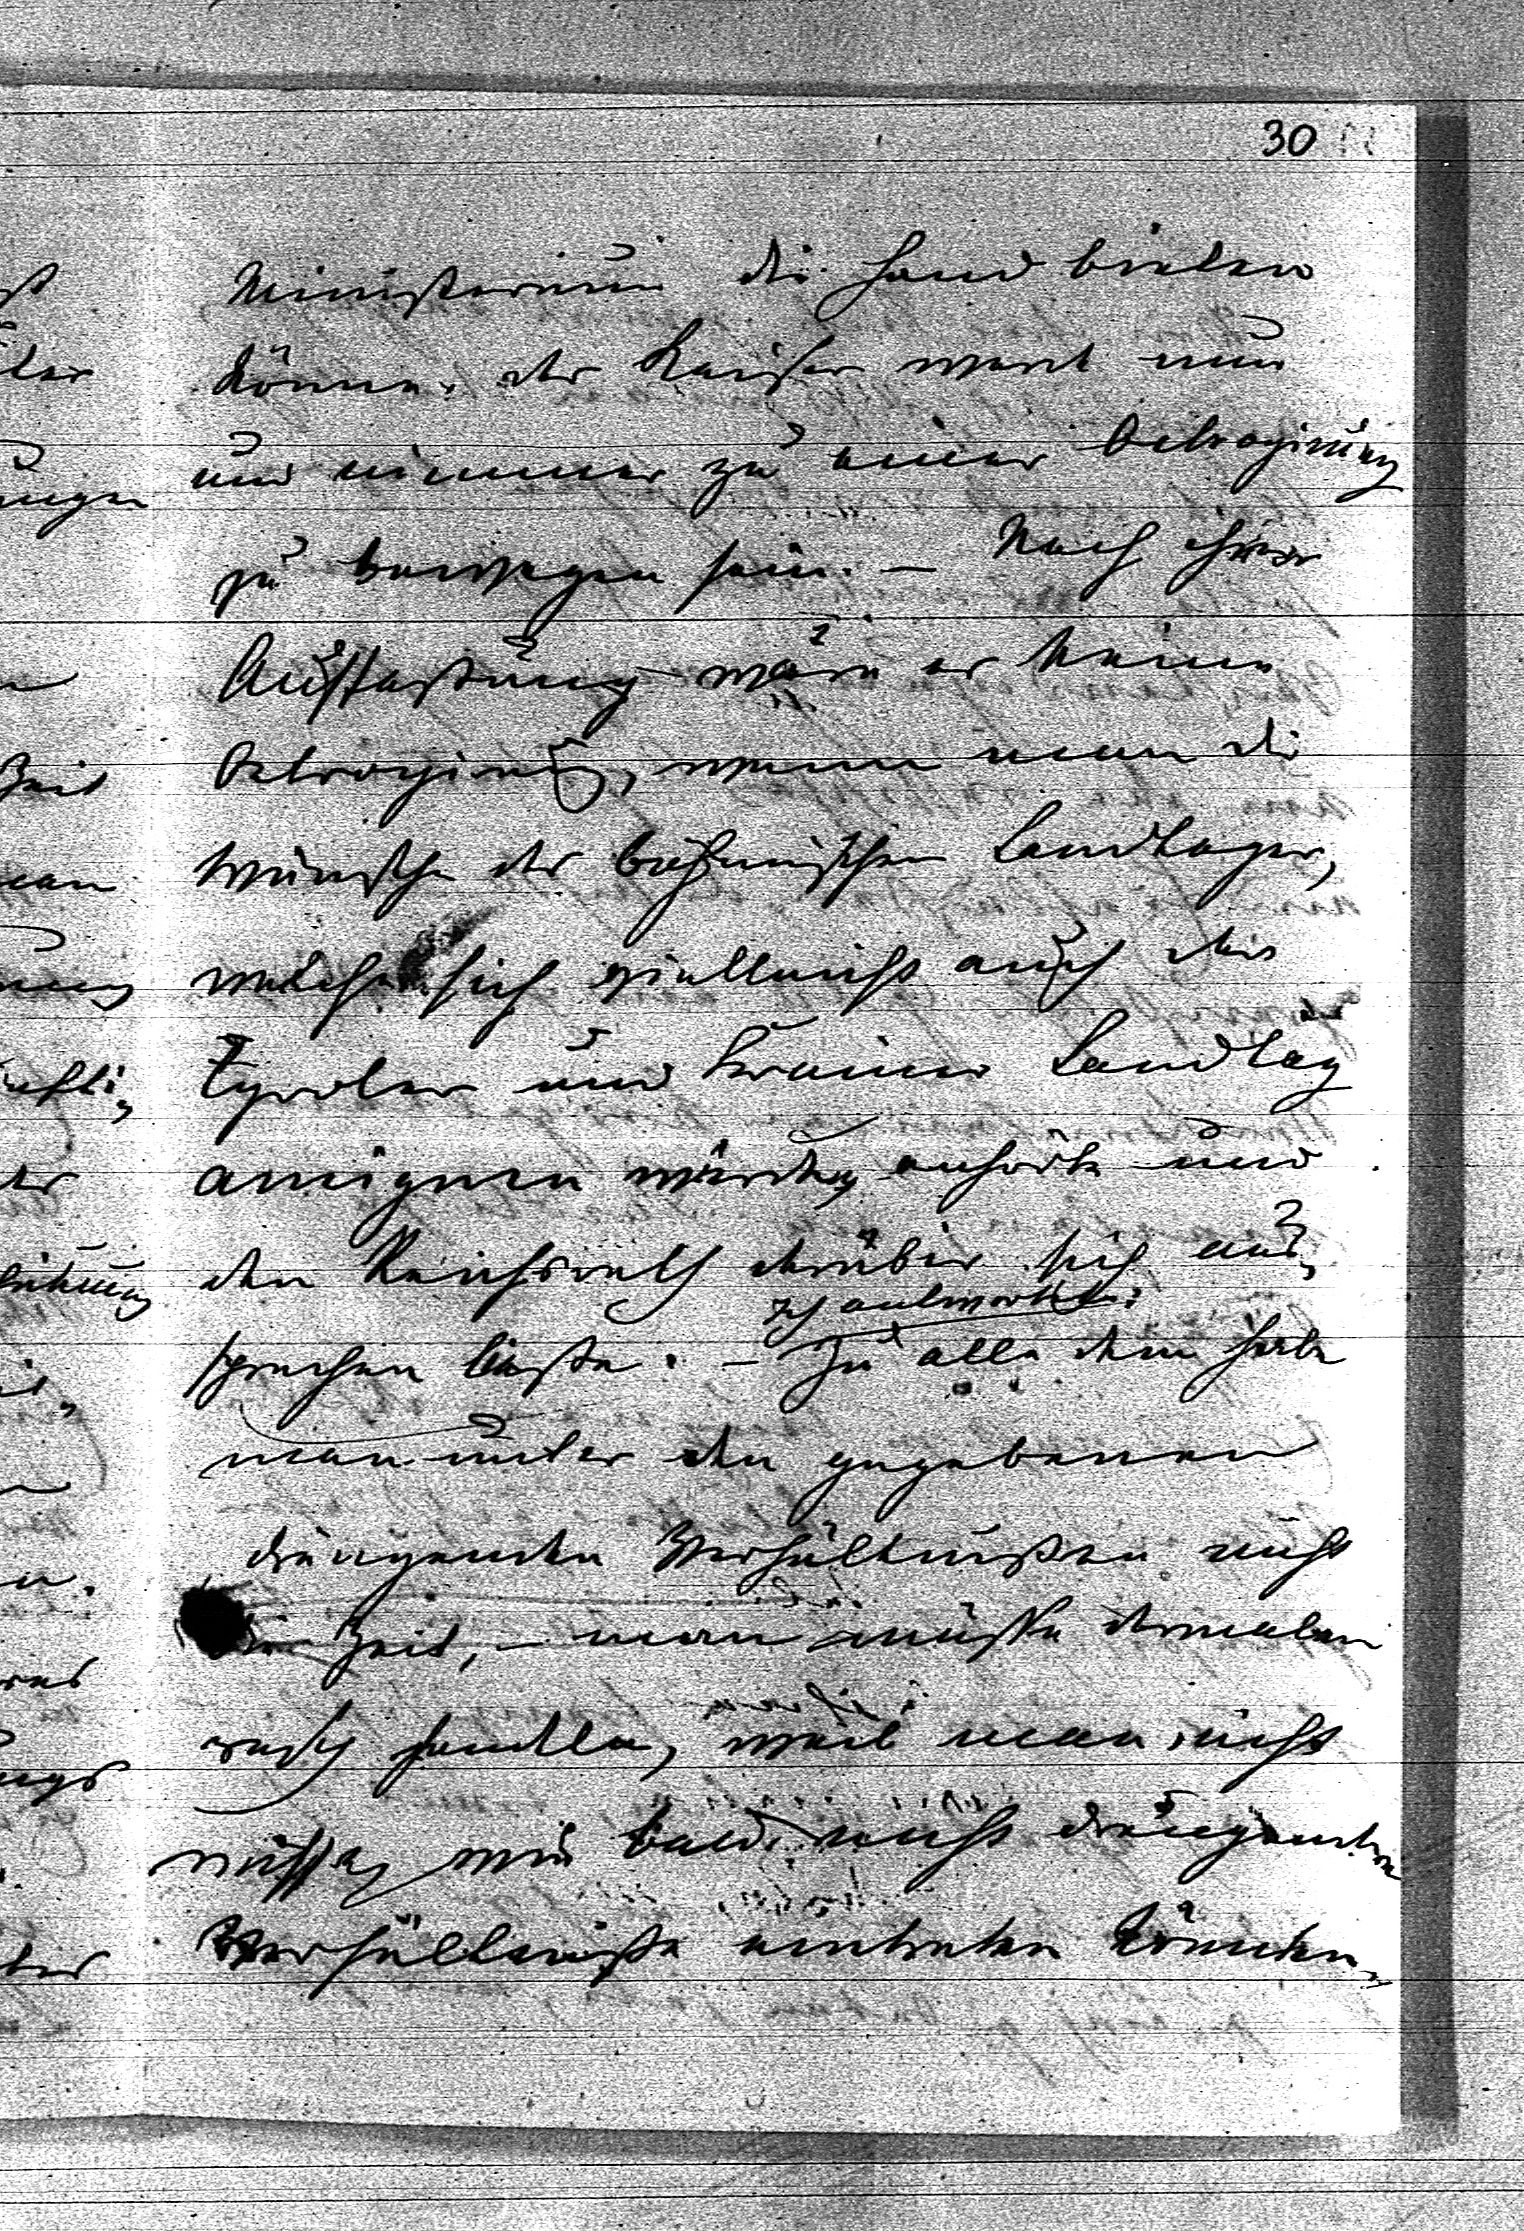 30
Ministerium die Hand bieten
könne. der Kaiser werd nun
und nimmer zu einer Octroyirung
zu bewegen sein. – Nach ihrer
Auffassung wäre es keine
Octroyirung, wenn man die
Wünsche des böhmischen Landtages,
welche sich vielleicht auch der
Tyroler und Krainer Landtag
aneignen würden anhörte und
den Reichsrath darüber sich aus,
sprechen ließe. – Ich antwortete:
Zu alle dem habe
man unter den gegebenen
drängenden Verhältnißen nicht
die Zeit, – man müßte dermalen
rasch handeln, weil man nicht
wissen wie bald nicht drängendere
Verhältniße eintreten könnten,